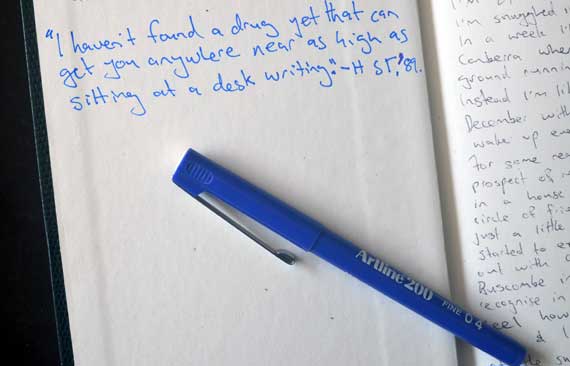 "I haven't found a drug yet that can
get you anywhere near as high as
sitting at a desk writing." - H ST, '89.
Artline 200
FINE 0.4
I'm smuggled i
In a week I'
Canberra whe
ground runnin
Instead I'm li
December with
wake up eve
For some rea
prospect of
in a house
circle of frie
just a little
started to e
out with
Buscombe i
recognise in
feel how